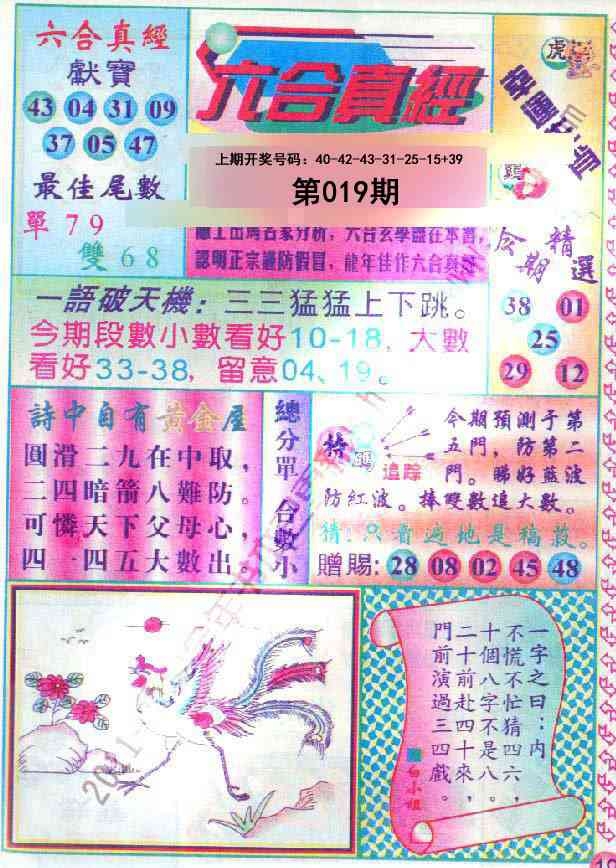 六合真經
獻寶
43 04 31 09
37 05 47
最佳尾數
單79
雙68
六合真經
上期开奖号码：40-42-43-31-25-15+39
第019期
認明正宗謹防假冒，龍年佳作六合真經
虎
精選
38 01
25
29 12
一語破天機：三三猛猛上下跳。
今期段數小數看好10-18，大數
看好33-38，留意04、19。
詩中自有黃金屋
圓滑二九在中取，
二四暗箭八難防。
可憐天下父母心，
四一四五大數出。
總分單
合數小
特碼
追踪
今期預測于第
五門，防第二
門。睇好藍波
防紅波。捧雙數追大數。
猜：只看遍地是稿菽。
贈賜：28 08 02 45 48
一字之曰：内
不慌不忙猜四六，
十個八字不是八。
二十前赴四十來，
門前演過三四戲。
白小姐